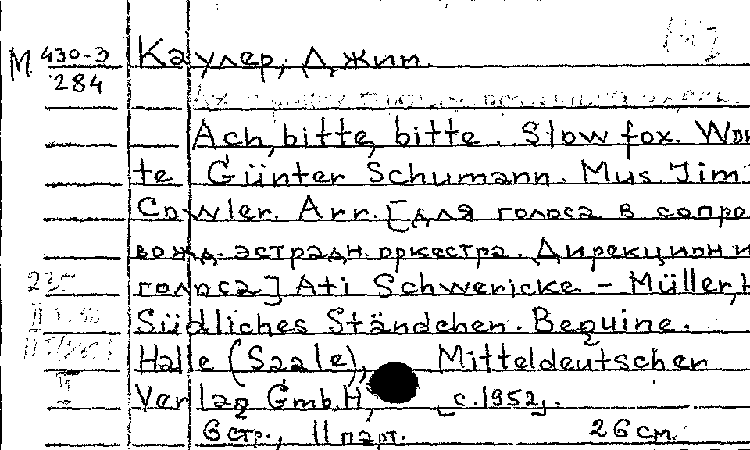 М 430-3
284
Каулер, Джим.
Ach, bitte, bitte. Slow fox. Wor
te Günter Schumann. Mus. Jim
Cowler. Arr. [для голоса в сопро
вожд. эстрадн. оркестра. Дирекцион и
голоса] Ati Schwericke - Müller, H
Südliches Ständchen. Beguine.
Halle (Saale), Mitteldeutscher
Verlag GmbH, [c. 1952].
6 стр., 11 парт. 26 см.